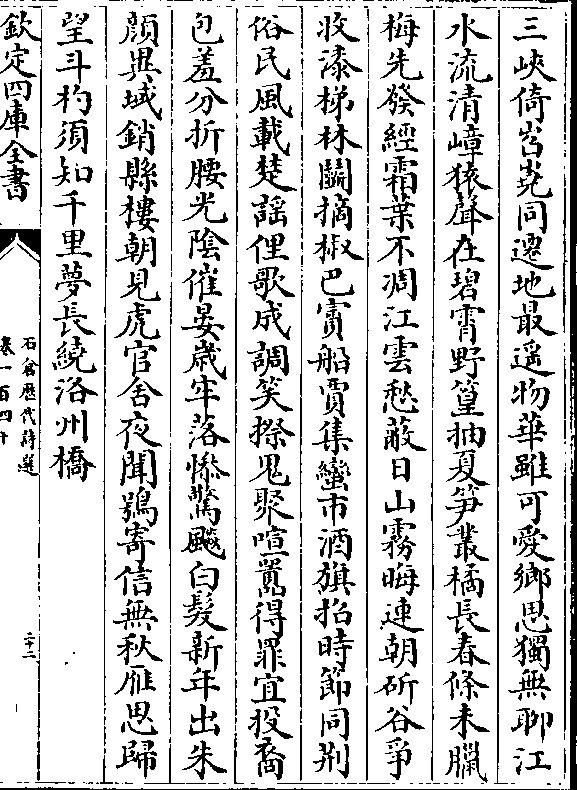 三峽倚岧嶤同遷地最遥物華雖可愛鄉思獨無聊江
水流清嶂猿聲在碧霄野篁抽夏笋叢橘長春條未臘
梅先發經霜葉不凋江雲愁蔽日山霧晦連朝斫谷爭
收漆梯林鬬摘椒巴賨船賈集蠻市酒旗招時節同荆
俗民風載楚謡俚歌成調笑擦鬼聚喧囂得罪宜投裔
包羞分折腰光陰催晏歲牢落慘驚飈白髮新年出朱
顔異域銷縣樓朝見虎官舍夜聞鴞寄信無秋雁思歸
望斗杓須知千里夢長繞洛州橋
欽定四庫全書
石倉歷代詩選
卷一百四十
二十二